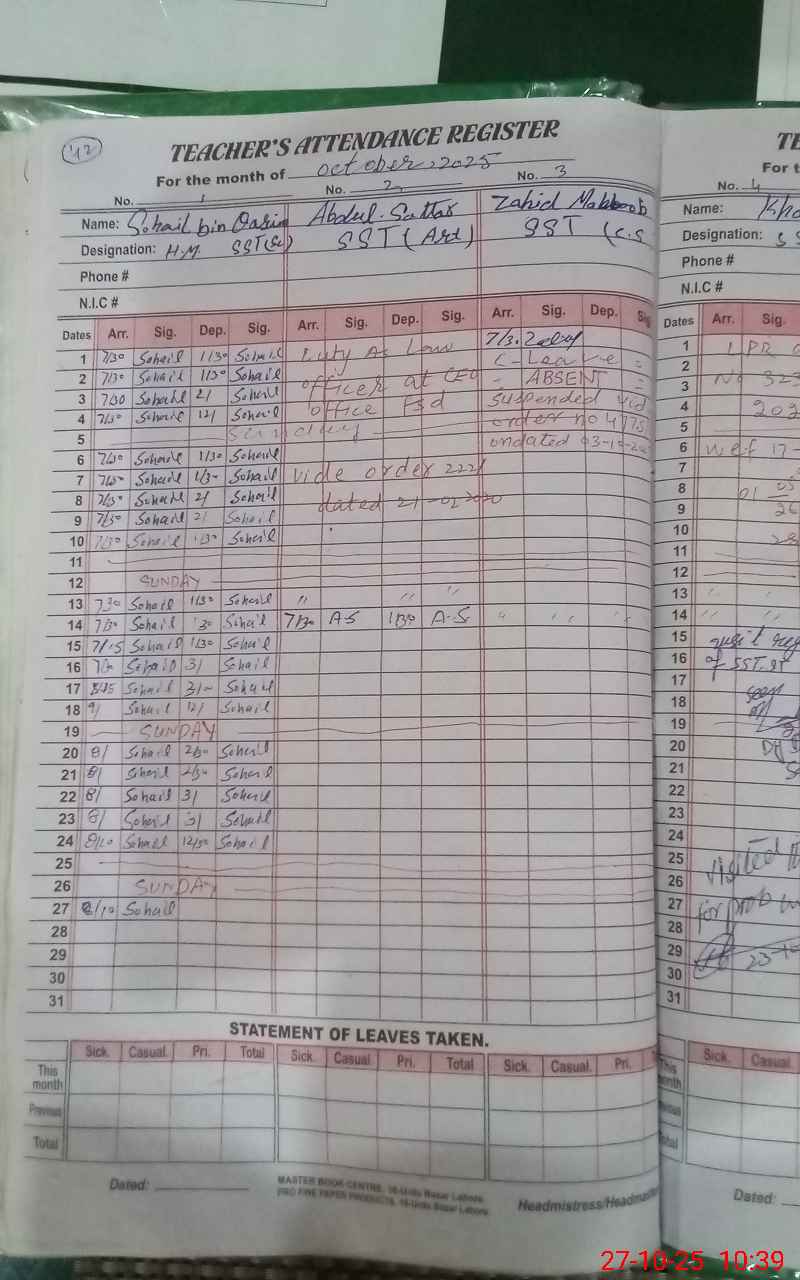 42
TEACHER'S ATTENDANCE REGISTER
For the month of October 2025
No. 1 No. 2 No. 3
Name: Sohail bin Abdul Sattar Zahid
Designation: H.M. SST(Sc) SST (Art) SST (C.S
Phone #
N.I.C #
Dates Arr. Sig. Dep. Sig. Arr. Sig. Dep. Sig. Arr. Sig. Dep. Sig
1 7/30 Sohail 1/30 Sohail Duty As Law 7/30
2 7/30 Sohail 1/30 Sohail officer at CEO C-Leave
3 7/30 Sohail 2/ Sohail office Fsd ABSENT
4 7/30 Sohail 12/ Sohail suspended
5 Sunday order no
6 7/30 Sohail 1/30 Sohail
7 Sohail 1/30 Sohail vide order 222/
8 7/30 Sohail 2/ Sohail dated 21-01-2020
9 7/30 Sohail 2/ Sohail
10 7/30 Sohail 1/30 Sohail
11
12 SUNDAY
13 7/30 Sohail 1/30 Sohail " " "
14 7/30 Sohail 1/30 Sohail 7/30 A-S 1/30 A-S " " "
15 7/15 Sohail 1/30 Sohail
16 Sohail 3/ Sohail
17 8/15 Sohail 3/ Sohail
18 9/ Sohail 12/ Sohail
19 SUNDAY
20 8/ Sohail 2/30 Sohail
21 8/ Sohail 2/30 Sohail
22 8/ Sohail 3/ Sohail
23 8/ Sohail 3/ Sohail
24 8/10 Sohail 12/30 Sohail
25
26 SUNDAY
27 8/10 Sohail
28
29
30
31
STATEMENT OF LEAVES TAKEN.
Sick. Casual. Pri. Total Sick. Casual Pri. Total Sick. Casual. Pri.
This month
Previous
Total
Dated:
MASTER BOOK CENTRE, 16-Urdu Bazar Lahore
PRO FINE PAPER PRODUCTS, 16-Urdu Bazar Lahore
Headmistress/Headmaste
TE
For t
No. 4
Name: Kha
Designation: SS
Phone #
N.I.C #
Dates Arr. Sig.
1 LPR
2
3 No 323
4 202
5
6 wef 17-
7
8 01 05
9 26
10
11
12
13 " "
14 " "
15
16 of SST
17
18 seen
19
20
21
22
23
24
25 visited
26
27 for
28
29 23-10
30
31
Sick. Casual.
This month
Total
Dated:
27-10-25 10:39